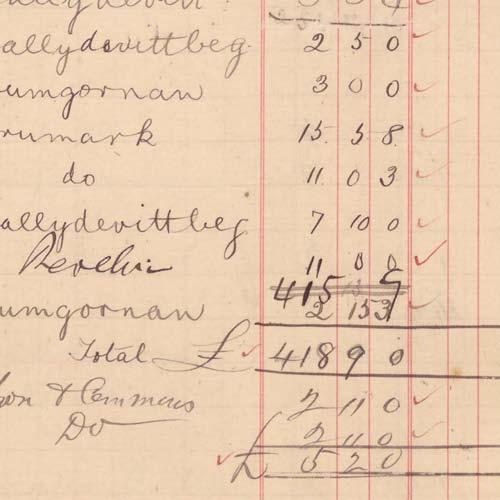 allydevittbeg 2 5 0
umgornan 3 0 0
rumark 15 5 8
do 11 0 3
allydevittbeg 7 10 0
11 0 0
415
umgornan 2 15 3
Total £ 418 9 0
& Commons 2 11 0
Do 2 11 0
£ 5 2 0